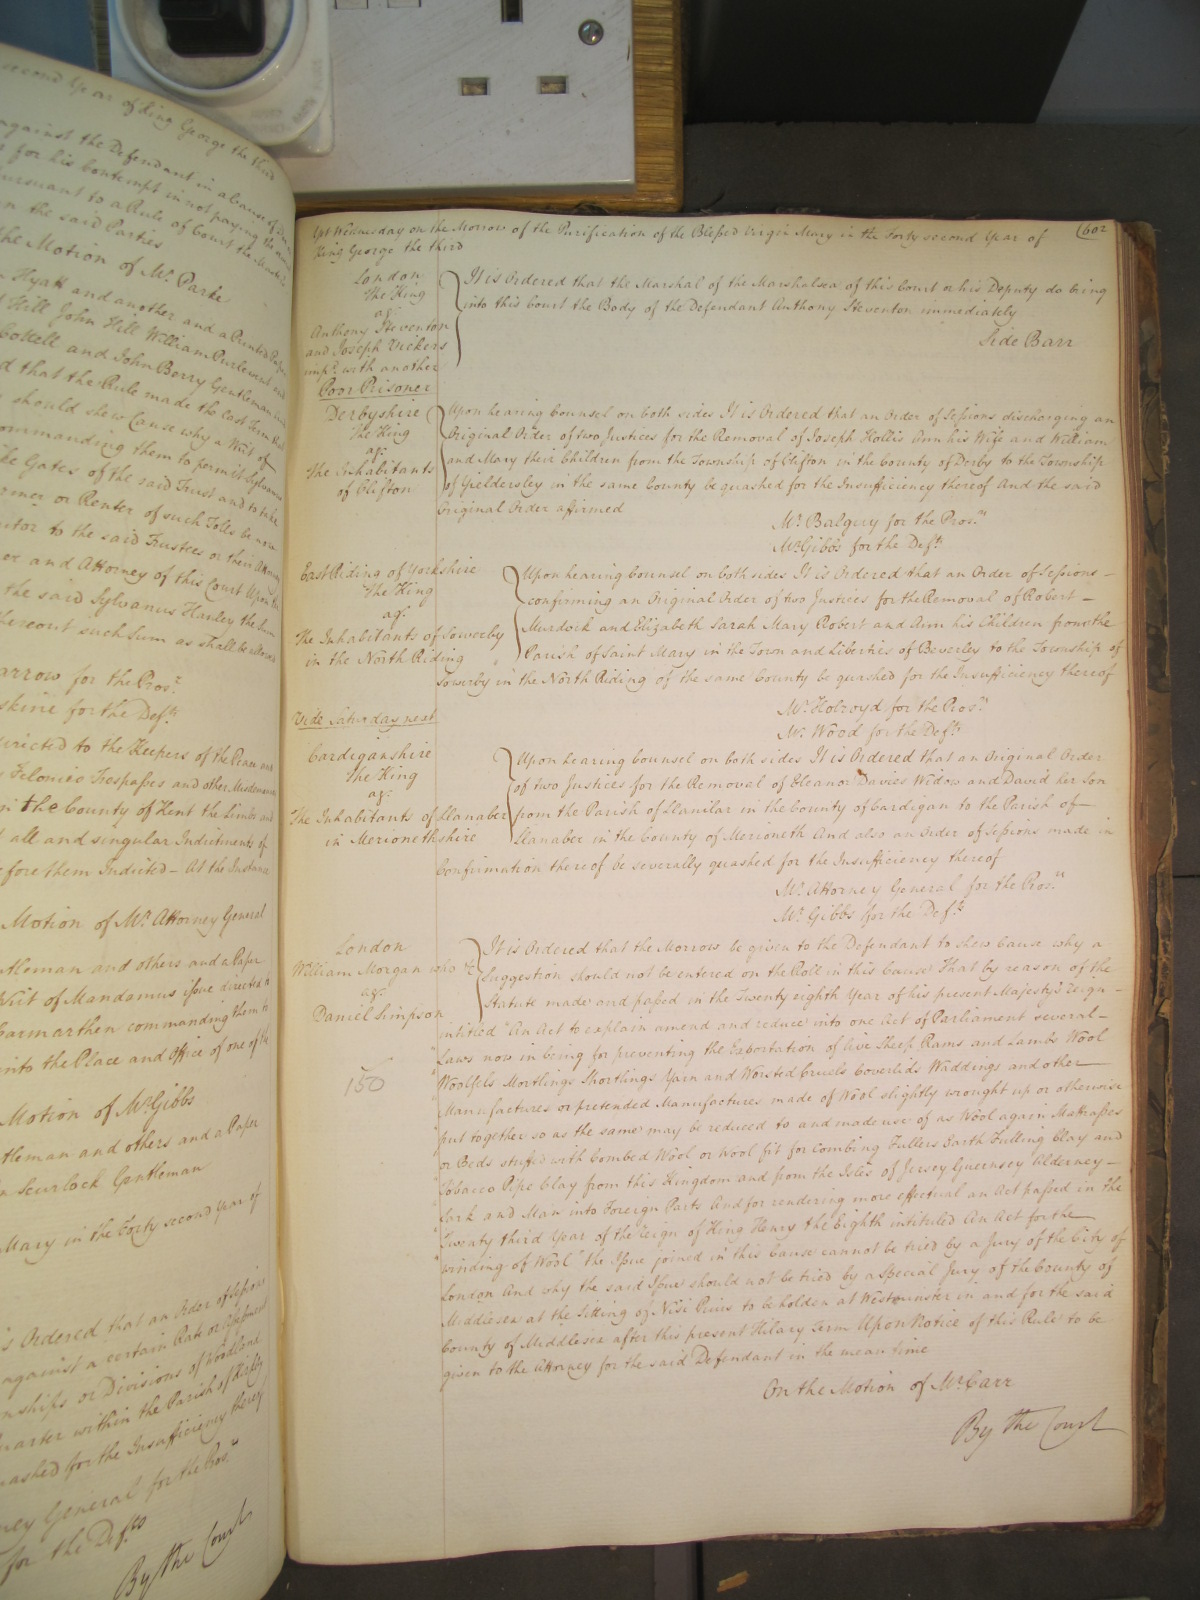 second Year of King George the third
against the Defendant in a Cause of
for his Contempt in not paying the
pursuant to a Rule of Court the
in the said Parties
the Motion of Mr. Parke
Hyatt and another and a Printed Paper
Hill John Hill William Purlewent and
Cottell and John Berry Gentleman
d that the Rule made the last Term
should shew Cause why a Writ of
commanding them to permit Sylvanus
the Gates of the said Trust and to take
or Renter of such Tolls be now
to the said Trustees or their Attorney
and Attorney of this Court Upon
the said Sylvanus Hanley the Sum
thereout such Sum as shall be allowed
arrow for the Pros.r
skine for the Def.ts
directed to the Keepers of the Peace and
Felonies Trespasses and other Misdemeanors
in the County of Kent the Limbs and
all and singular Indictments of
fore them Indicted – At the Instance
Motion of Mr. Attorney General
ntleman and others and a Paper
Writ of Mandamus issue directed to
Carmarthen commanding them to
into the Place and Office of one of the
Motion of Mr. Gibbs
tleman and others and a Paper
Scurlock Gentleman
Mary in the Forty second Year of
is Ordered that an Order of Sessions
against a certain Rate or Assessment
nships or Divisions of Woodland
Quarter within the Parish of
uashed for the Insufficiency thereof
ney General for the Pros.rs
for the Def.ts
By the Court
602
Yet Wednesday on the Morrow of the Purification of the Blessed Virgin Mary in the Forty second Year of
King George the third
London
The King
ag.t
Anthony Steventon
and Joseph Vickers
imp.d with another
Poor Prisoner
It is Ordered that the Marshal of the Marshalsea of this Court or his Deputy do bring
into this Court the Body of the Defendant Anthony Steventon immediately
Side Barr
Derbyshire
The King
ag.t
The Inhabitants
of Clifton
Upon hearing Counsel on both sides It is Ordered that an Order of Sessions discharging an
Original Order of two Justices for the Removal of Joseph Hollis Ann his Wife and William
and Mary their Children from the Township of Clifton in the County of Derby to the Township
of Yieldersley in the same County be quashed for the Insufficiency thereof And the said
Original Order affirmed
Mr. Balguy for the Pros.rs
Mr. Gibbs for the Def.ts
East Riding of Yorkshire
The King
ag.t
The Inhabitants of Sowerby
in the North Riding
Upon hearing Counsel on both sides It is Ordered that an Order of Sessions –
confirming an Original Order of two Justices for the Removal of Robert –
Murdock and Elizabeth Sarah Mary Robert and Ann his Children from the
Parish of Saint Mary in the Town and Liberties of Beverley to the Township of
Sowerby in the North Riding of the same County be quashed for the Insufficiency thereof
Mr. Holroyd for the Pros.rs
Mr. Wood for the Def.ts
Vide Saturday next
Cardiganshire
The King
ag.t
The Inhabitants of Llanaber
in Merionethshire
Upon hearing Counsel on both sides It is Ordered that an Original Order
of two Justices for the Removal of Eleanor Davies Widow and David her Son
from the Parish of Llanilar in the County of Cardigan to the Parish of –
Llanaber in the County of Merioneth And also an Order of Sessions made in
Confirmation thereof be severally quashed for the Insufficiency thereof
Mr. Attorney General for the Pros.rs
Mr. Gibbs for the Def.ts
London
William Morgan who &c
ag.t
Daniel Simpson
150
It is Ordered that the Morrow be given to the Defendant to shew Cause why a
Suggestion should not be entered on the Roll in this Cause "That by reason of the
Statute made and passed in the Twenty eighth Year of his present Majesty's Reign –
intitled "An Act to explain amend and reduce into one Act of Parliament several –
Laws now in being for preventing the Exportation of live Sheep Rams and Lambs Wool
Woolfels Mortlings Shortlings Yarn and Worsted Cruels Coverlids Waddings and other
Manufactures or pretended Manufactures made of Wool slightly wrought up or otherwise
put together so as the same may be reduced to and made use of as Wool again Mattrasses
or Beds stuffed with Combed Wool or Wool fit for Combing Fullers Earth Fulling Clay and
Tobacco Pipe Clay from this Kingdom and from the Isles of Jersey Guernsey Alderney –
Sark and Man into Foreign Parts And for rendering more effectual an Act passed in the
Twenty third Year of the Reign of King Henry the Eighth intituled An Act for the
winding of Wool" the Issue joined in this Cause cannot be tried by a Jury of the City of
London And why the said Issue should not be tried by a Special Jury of the County of
Middlesex at the Sitting of Nisi Prius to be holden at Westminster in and for the said
County of Middlesex after this present Hilary Term Upon Notice of this Rule to be
given to the Attorney for the said Defendant in the mean time
On the Motion of Mr. Carr
By the Court